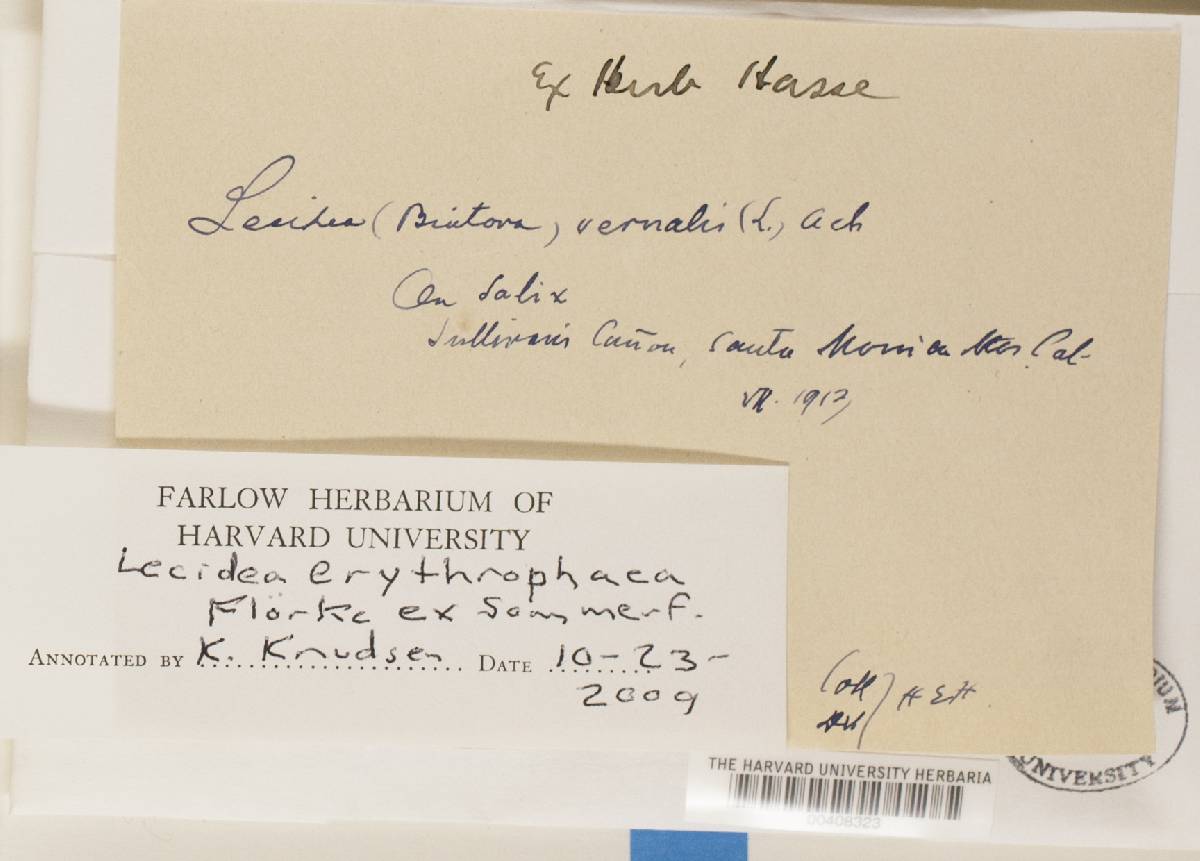 Ex Herb Hasse
Lecidea (Biatora) vernalis (L.) Ach
On Salix
Sullivan's Cañon, Santa Monica Mts. Cal-
1913
FARLOW HERBARIUM OF
HARVARD UNIVERSITY
Lecidea erythrophaea
Flörke ex Sommerf.
ANNOTATED BY K. Knudsen DATE 10-23-
2009
Coll
Det
H E H
UNIVERSITY
THE HARVARD UNIVERSITY HERBARIA
00408323